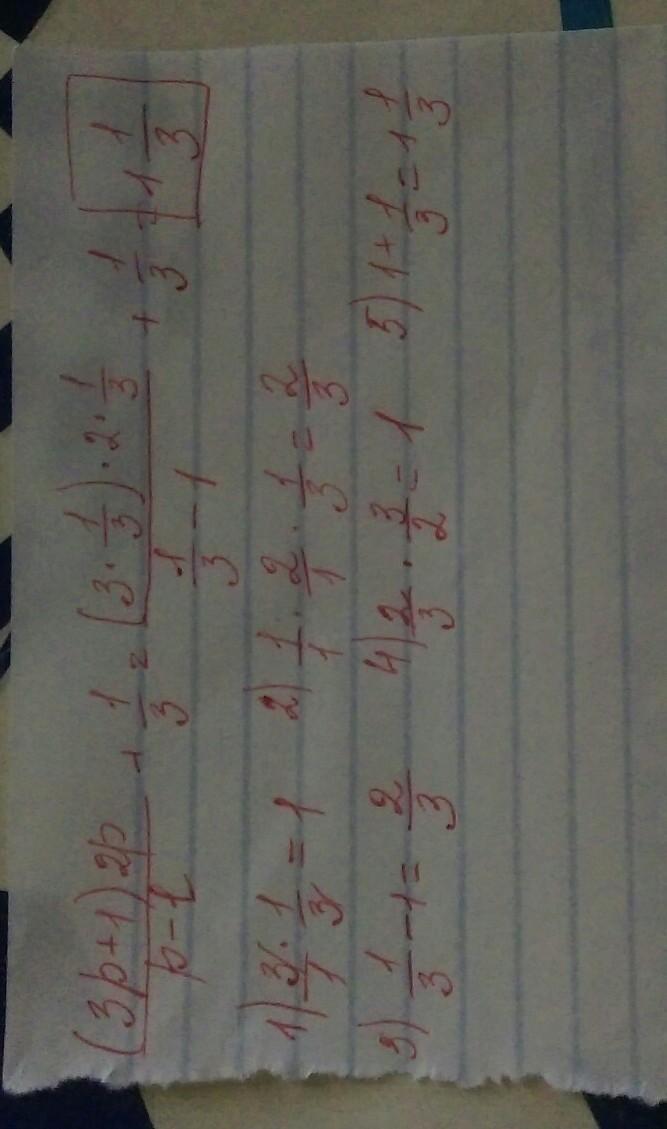 (3p+1)2p/p-1 + 1/3 = (3·1/3)·2·1/3 / 1/3-1 + 1/3 = 1 1/3
1) 3/1·1/3=1 2) 1/1·2/1·1/3=2/3
3) 1/3-1=2/3 4) 2/3·3/2=1 5) 1+1/3=1 1/3